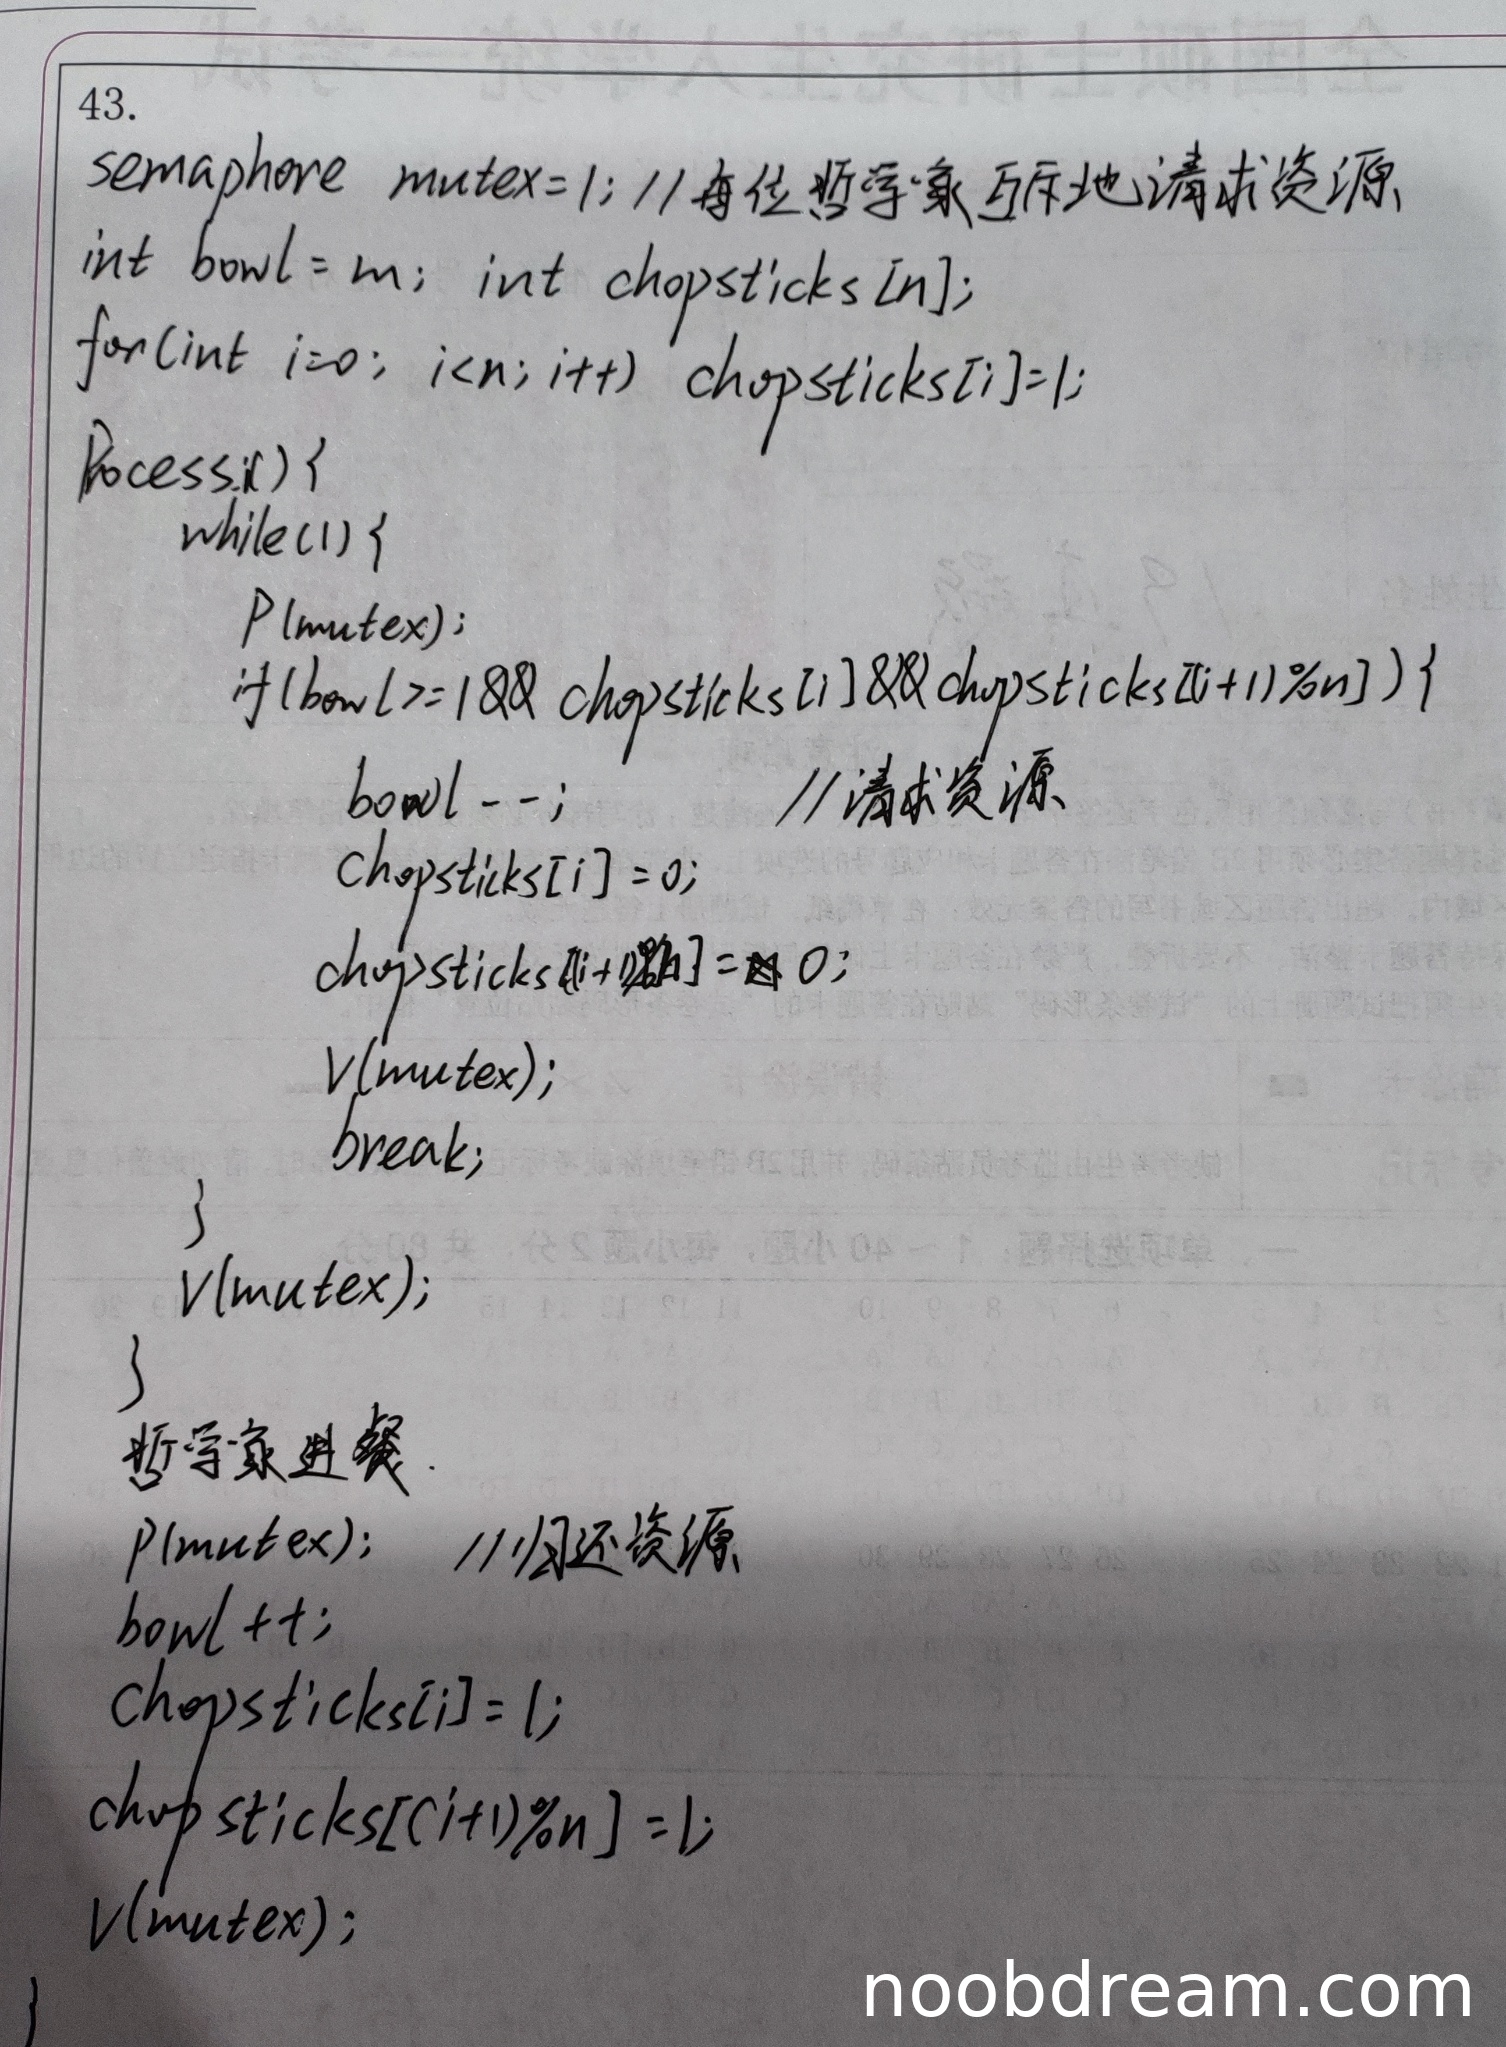 43.
semaphore mutex=1; //每位哲学家互斥地请求资源
int bowl=m; int chopsticks[n];
for(int i=0; i<n; i++) chopsticks[i]=1;
Process i() {
while(1){
P(mutex);
if(bowl>=1&& chopsticks[i]&&chopsticks[(i+1)%n]){
bowl--; //请求资源
chopsticks[i]=0;
chopsticks[(i+1)%n]=0;
V(mutex);
break;
}
V(mutex);
}
哲学家进餐.
P(mutex); //归还资源
bowl++;
chopsticks[i]=1;
chopsticks[(i+1)%n]=1;
V(mutex);
}
noobdream.com